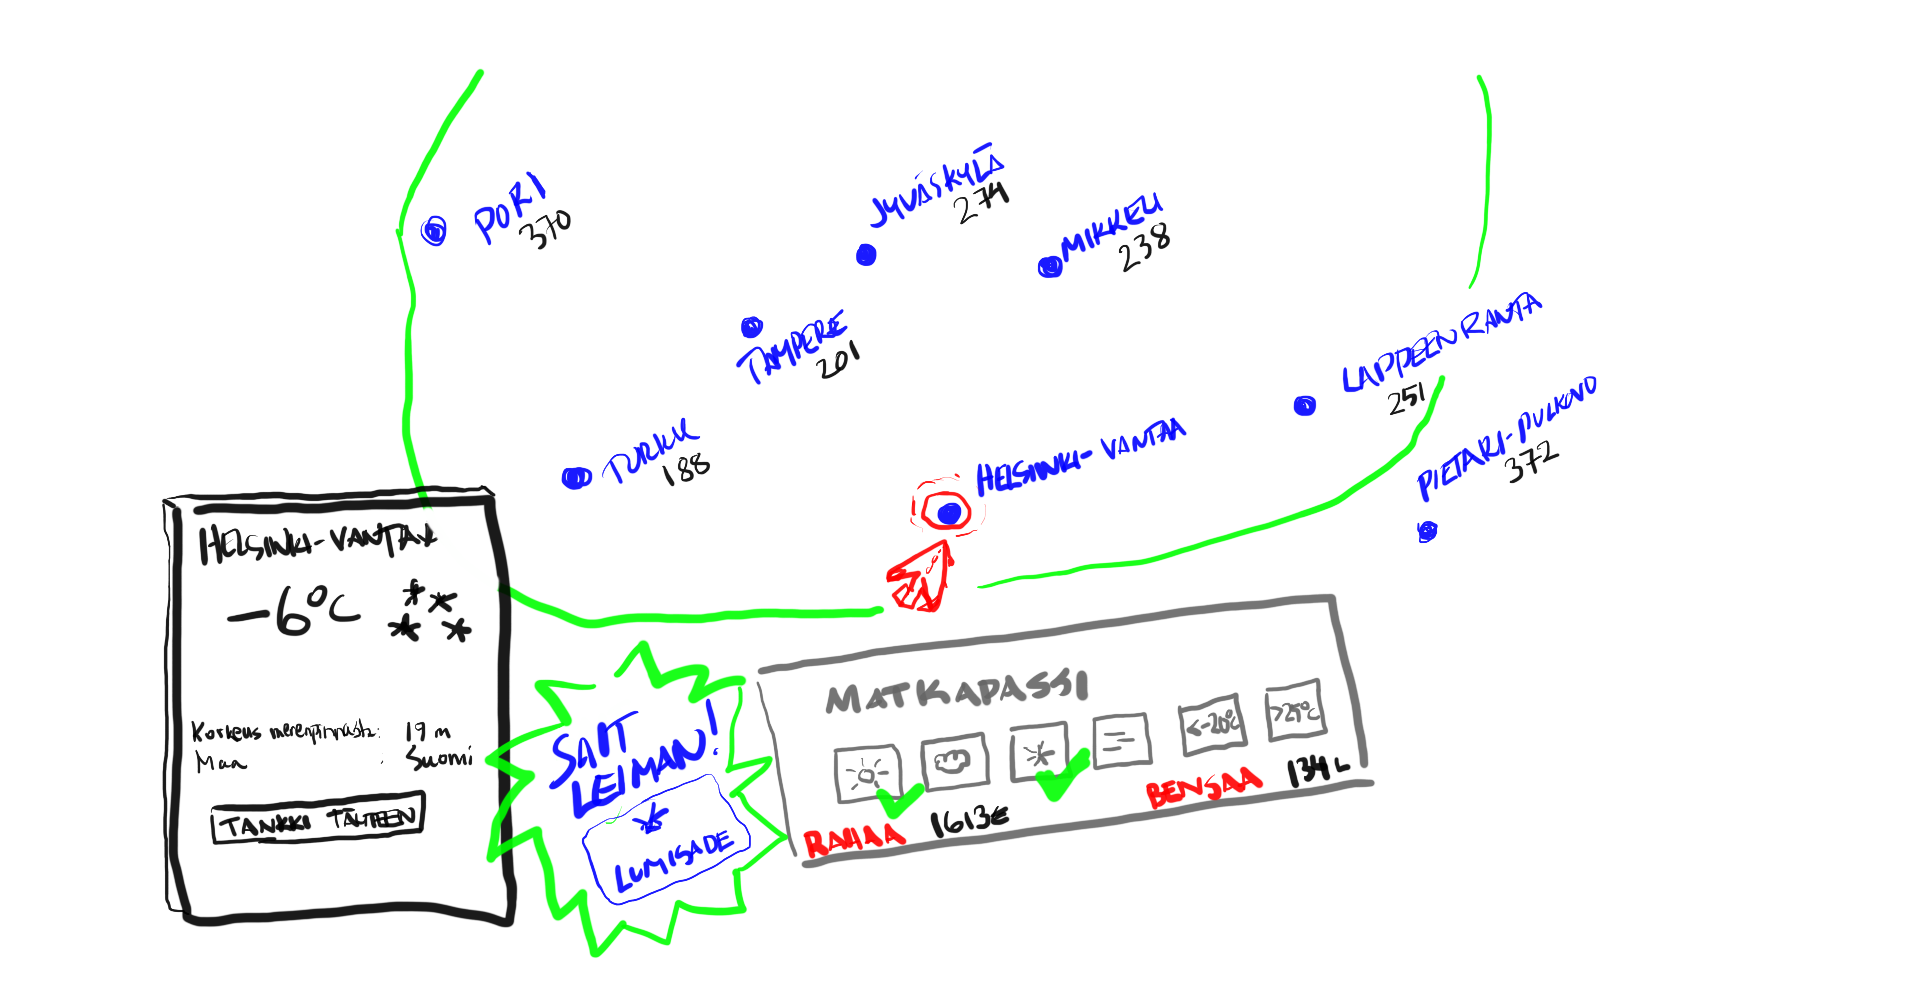 PORI
370
JYVÄSKYLÄ
274
MIKKELI
238
TAMPERE
201
LAPPEENRANTA
251
TURKU
188
HELSINKI-VANTAA
PIETARI-PULKOVO
372
HELSINKI-VANTAA
-6°C
Korkeus merenpinnasta: 19 m
Maa : Suomi
TANKKI TÄYTEEN
SAIT
LEIMAN!
LUMISADE
MATKAPASSI
<-20°C
>25°C
RAHAA 1613€
BENSAA 134 L